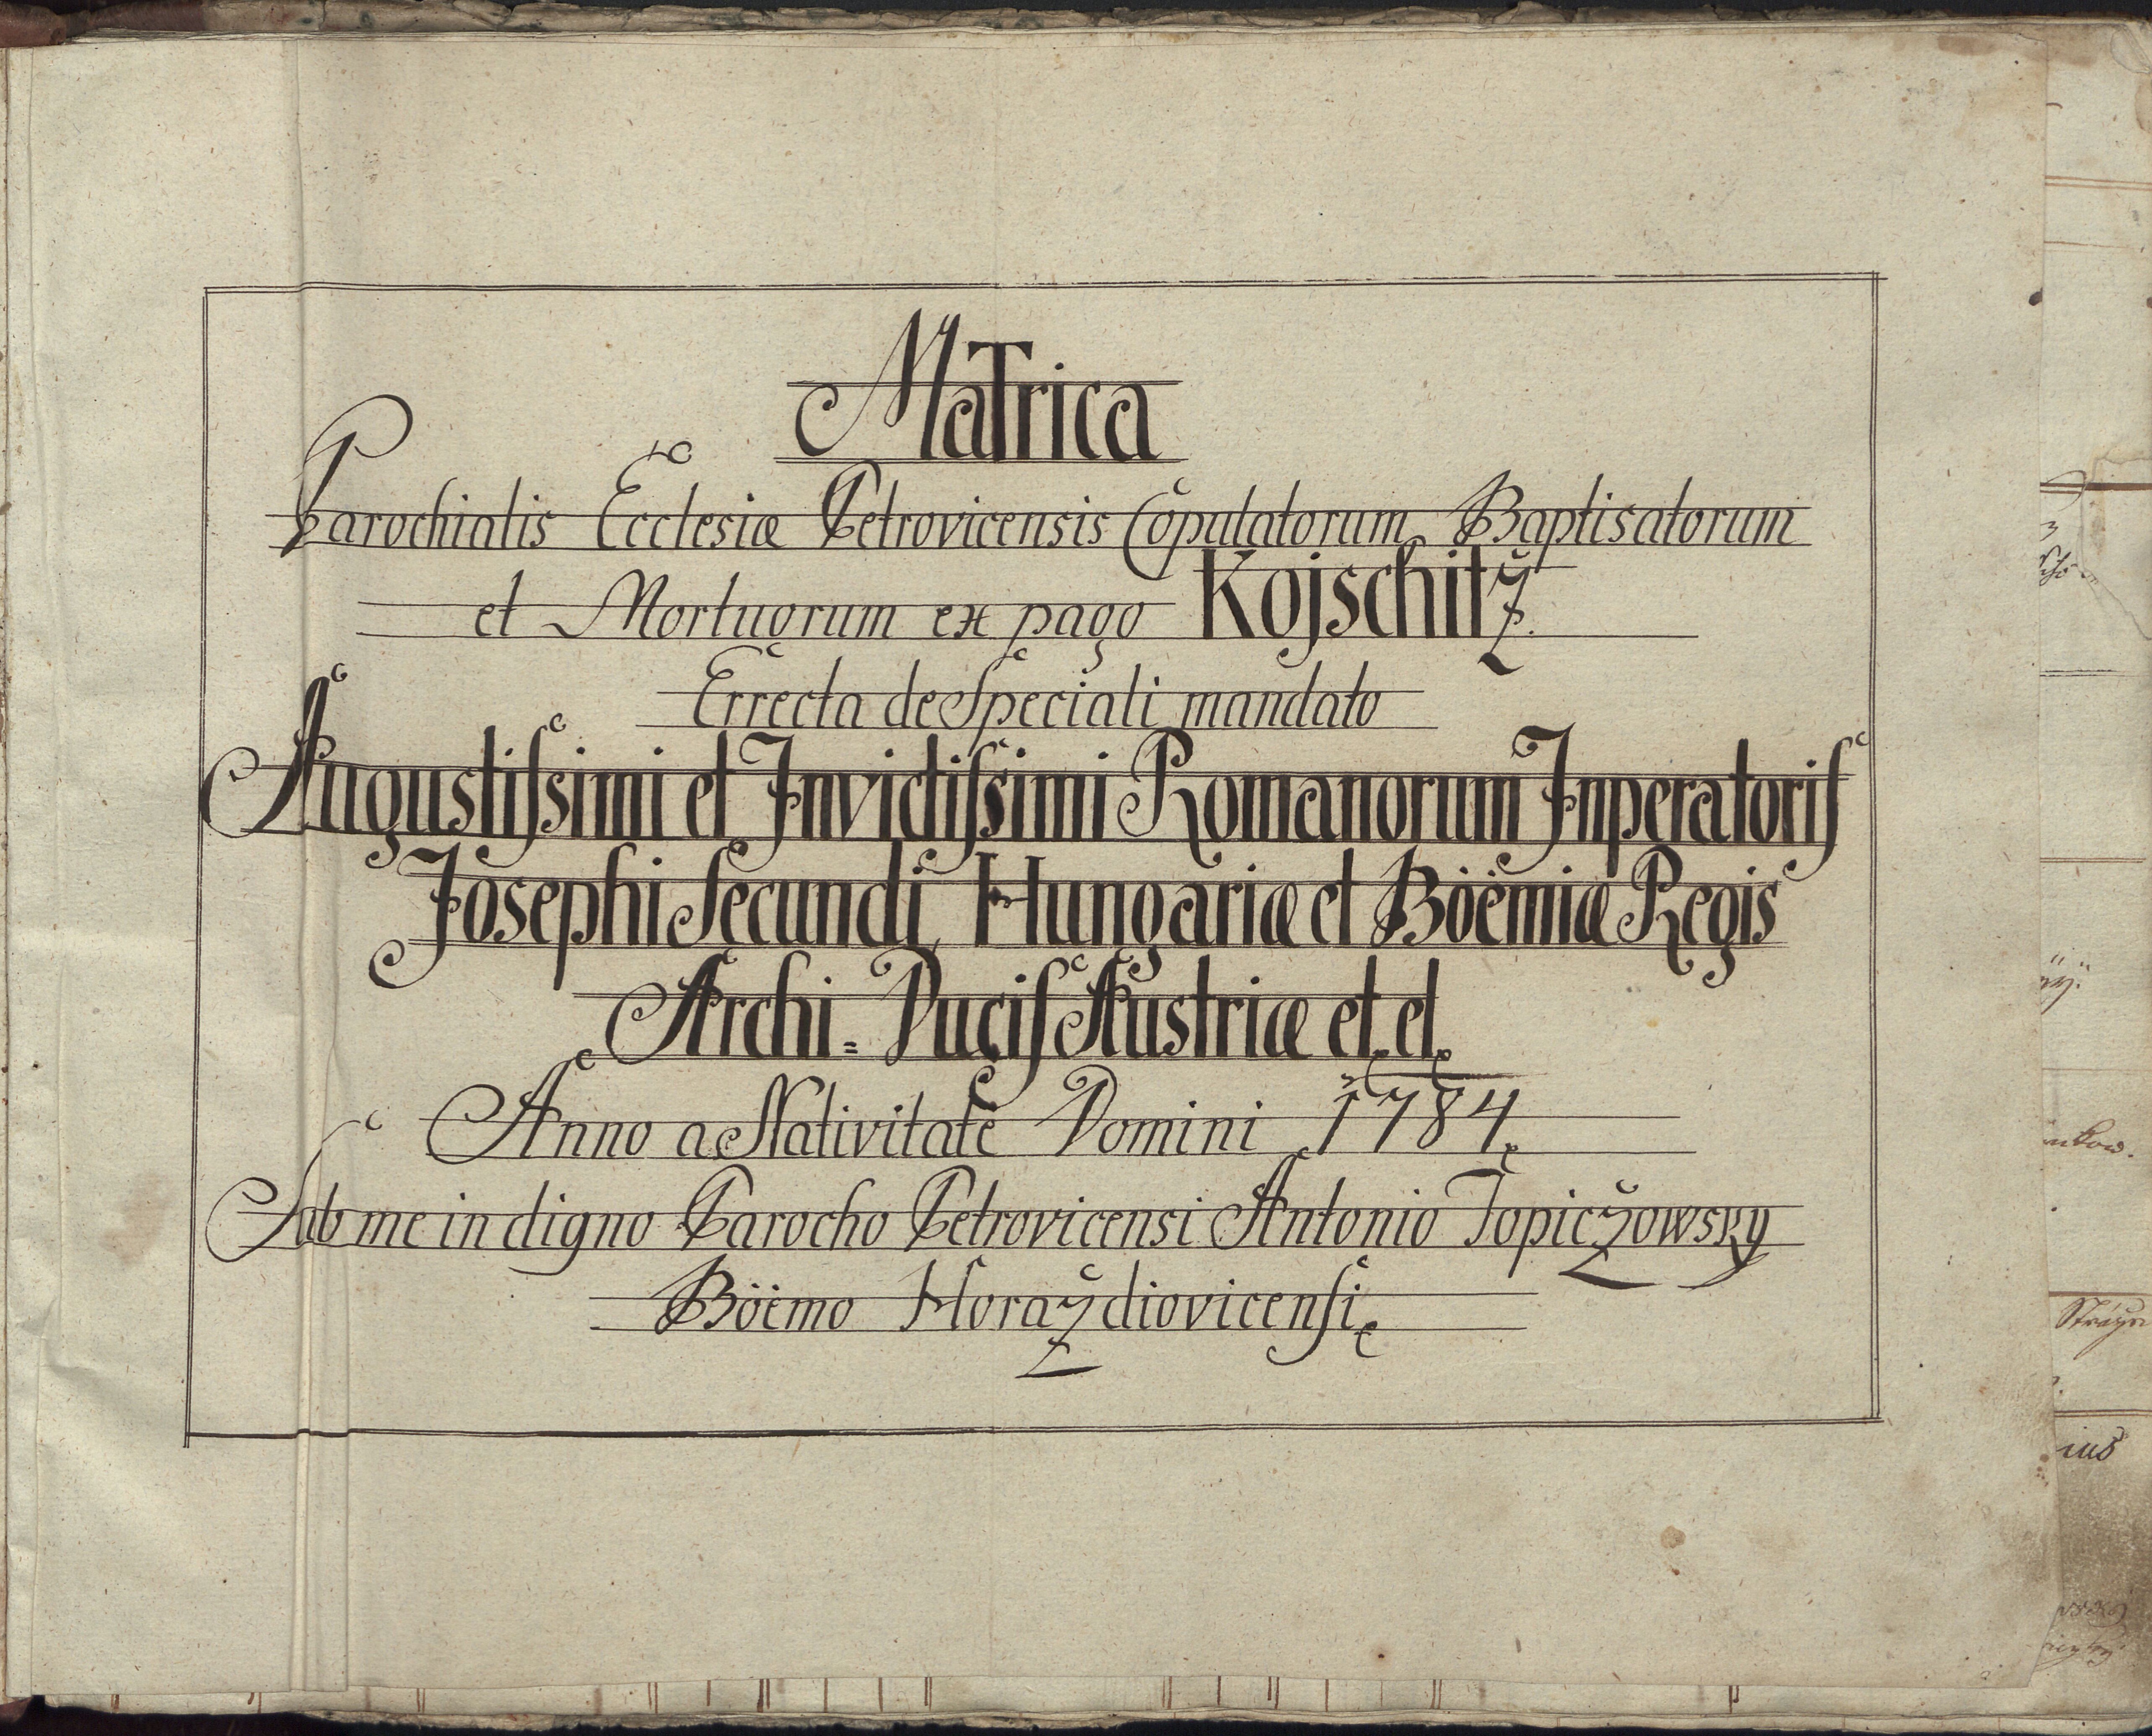 Matrica
Parochialis Ecclesiæ Petrovicensis Copulatorum Baptisatorum
et Mortuorum ex pago Kojschitz.
Errecta de Speciali mandato
Augustiſsimi et Invictiſsimi Romanorum Inperatoriſ
Josephi Secundi Hungariæ et Böëmiæ Regis
Archi= Duciſ Austriæ et. et.
Anno a Nativitate Domini 1784.
Sub me in digno Parocho Petrovicensi Antonio Topiczowsky
Böëmo Horazdiovicenſi.